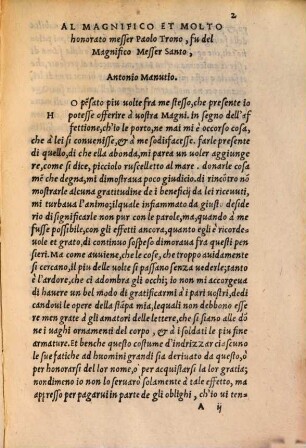 2
AL MAGNIFICO ET MOLTO
honorato messer Paolo Trono, fu del
Magnifico Messer Santo,
Antonio Manutio.
O pẽsato piu uolte fra me stesso, che presente io
H potesse offerire à uostra Magni. in segno dell'af
fettione, ch'io le porto, ne mai mi è occorso cosa,
che à lei si conuenisse, & à me sodisfacesse. farle presente
di quello, di che ella abonda, mi parea un uoler aggiunge
re, come si dice, picciolo ruscelletto al mare. donarle cosa
mẽ che degna, mi dimostraua poco giudicio. di rincõtro nõ
mostrarle alcuna gratitudine de i beneficij da lei riceuuti,
mi turbaua l'animo; il quale infiammato da giusto deside
rio di significarle non pur con le parole, ma, quando à me
fusse possibile, con gli effetti ancora, quanto egli è ricorde
uole et grato, di continuo sospeso dimoraua fra questi pen
sieri. Ma come auuiene, che le cose, che troppo auidamente
si cercano, il piu delle uolte si passano senza uederle; tanto
è l'ardore, che ci adombra gli occhi; io non mi accorgeua
di hauere un bel modo di gratificarmi à i pari uostri, dedi
candoui le opere della stãpa mia, lequali non debbono esse
re men grate à gli amatori delle lettere, che si siano alle dõ
ne i uaghi ornamenti del corpo, & à i soldati le piu fine
armature. Et benche questo costume d'indrizzar ciascuno
le sue fatiche ad huomini grandi sia deriuato da questo, ò
per honorarsi del lor nome, ò per acquistarsi la lor gratia;
nondimeno io non lo seruarò solamente à tal effetto, ma
appresso per pagarui in parte de gli oblighi, ch'io ui ten-
A ij